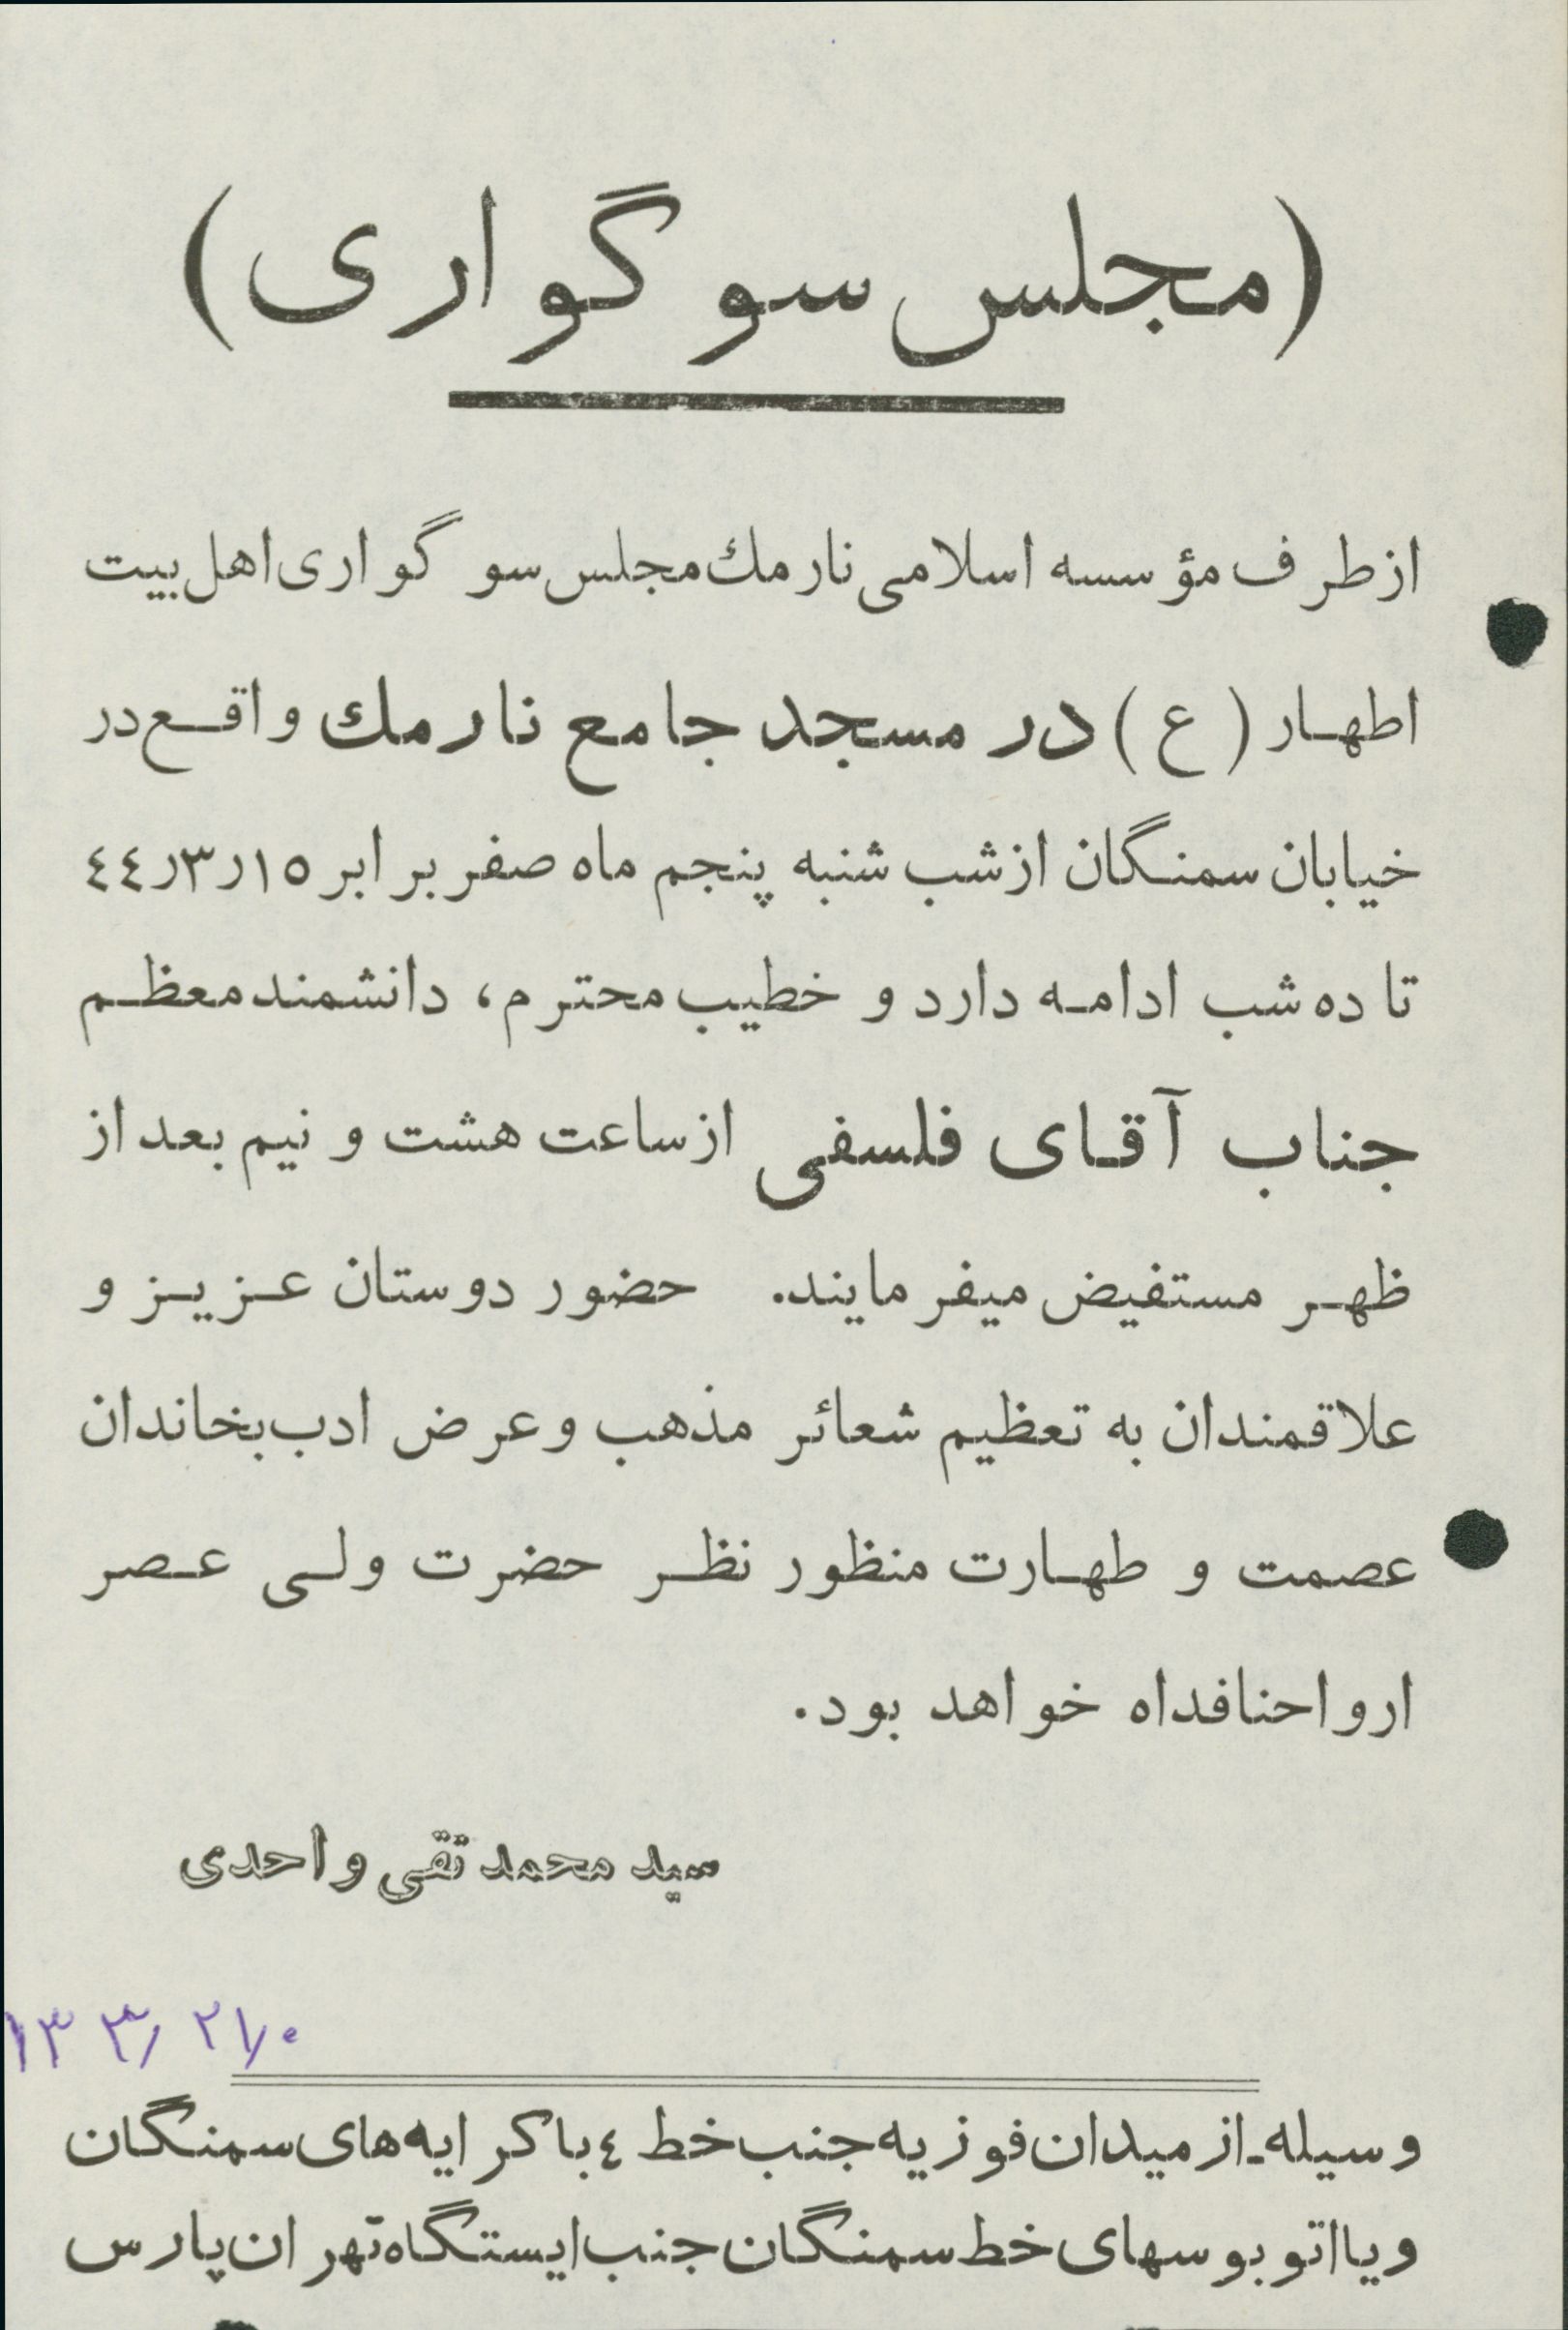 (مجلس سوگواری)
ازطرف مؤسسه اسلامی نارمك مجلس سوگواری اهل بیت
اطهار (ع) در مسجد جامع نارمك واقع در
خیابان سمنگان ازشب شنبه پنجم ماه صفر برابر ۱۵ر۳ر٤٤
تا ده شب ادامه دارد و خطیب محترم، دانشمند معظم
جناب آقای فلسفی از ساعت هشت و نیم بعد از
ظهر مستفیض میفرمایند. حضور دوستان عزیز و
علاقمندان به تعظیم شعائر مذهب و عرض ادب بخاندان
عصمت و طهارت منظور نظر حضرت ولی عصر
ارواحنافداه خواهد بود.
سید محمد تقی واحدی
وسیله-از میدان فوزیه جنب خط ٤ باکرایه‌های سمنگان
ویااتوبوسهای خط سمنگان جنب ایستگاه تهران پارس